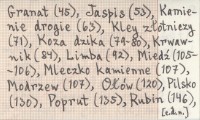 Granat (45), Jaspis (53), Kamie-
nie drogie (63), Kley złotniczy
(71), Koza dzika (79-80), Krwaw-
nik (84), Limba (92), Miedź (105-
-106), Mleczko kamienne (107),
Modrzew (107), Ołów (120), Pilsko
(130), Poprut (135), Rubin (146),
[c.d.n.]